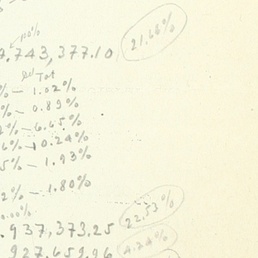 110%
21.66%
7.743,377.10
% - 1.02%
% - 0.89%
2% - 6.65%
6% - 10.24%
5% - 1.93%
2% - 1.80%
22.53%
.937,373.25
4.24%
927,659.96